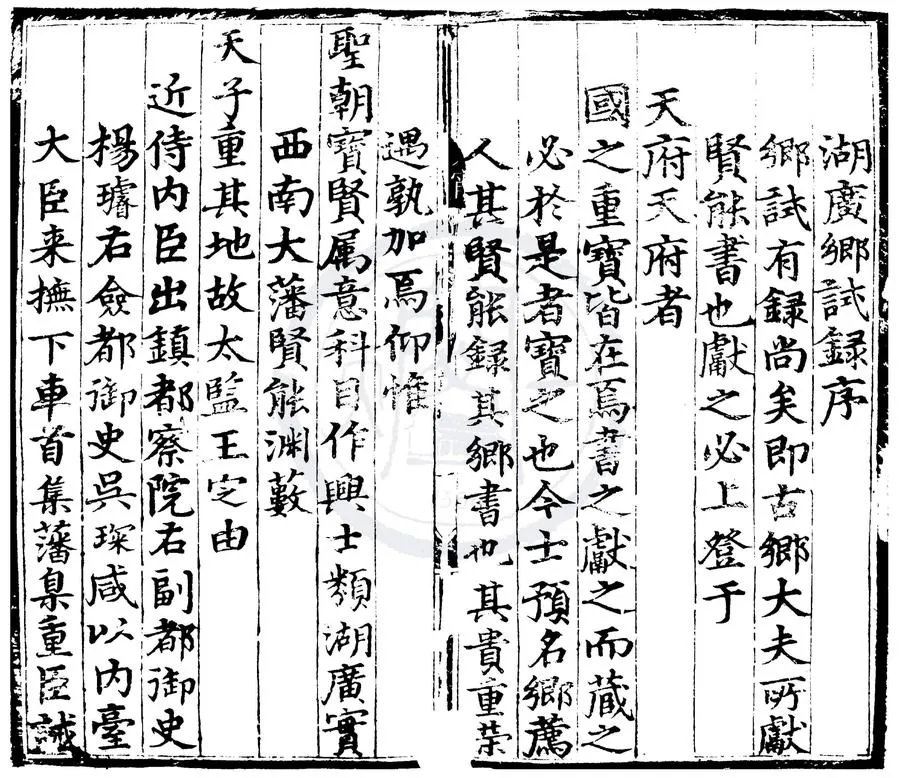 湖廣鄉試録序
鄉試有録尚矣即古鄉大夫所獻
賢能書也獻之必上登于
天府天府者
國之重寶皆在焉書之獻之而藏之
必於是者寶之也今士預名鄉薦
人其賢能録其鄉書也其貴重榮
遇孰加焉仰惟
聖朝寶賢属意科目作興士類湖廣實
西南大藩賢能淵藪
天子重其地故太監王定由
近侍内臣出鎮都察院右副都御史
楊璿右僉都御史吳琛咸以内臺
大臣来撫下車首集藩臬重臣誡